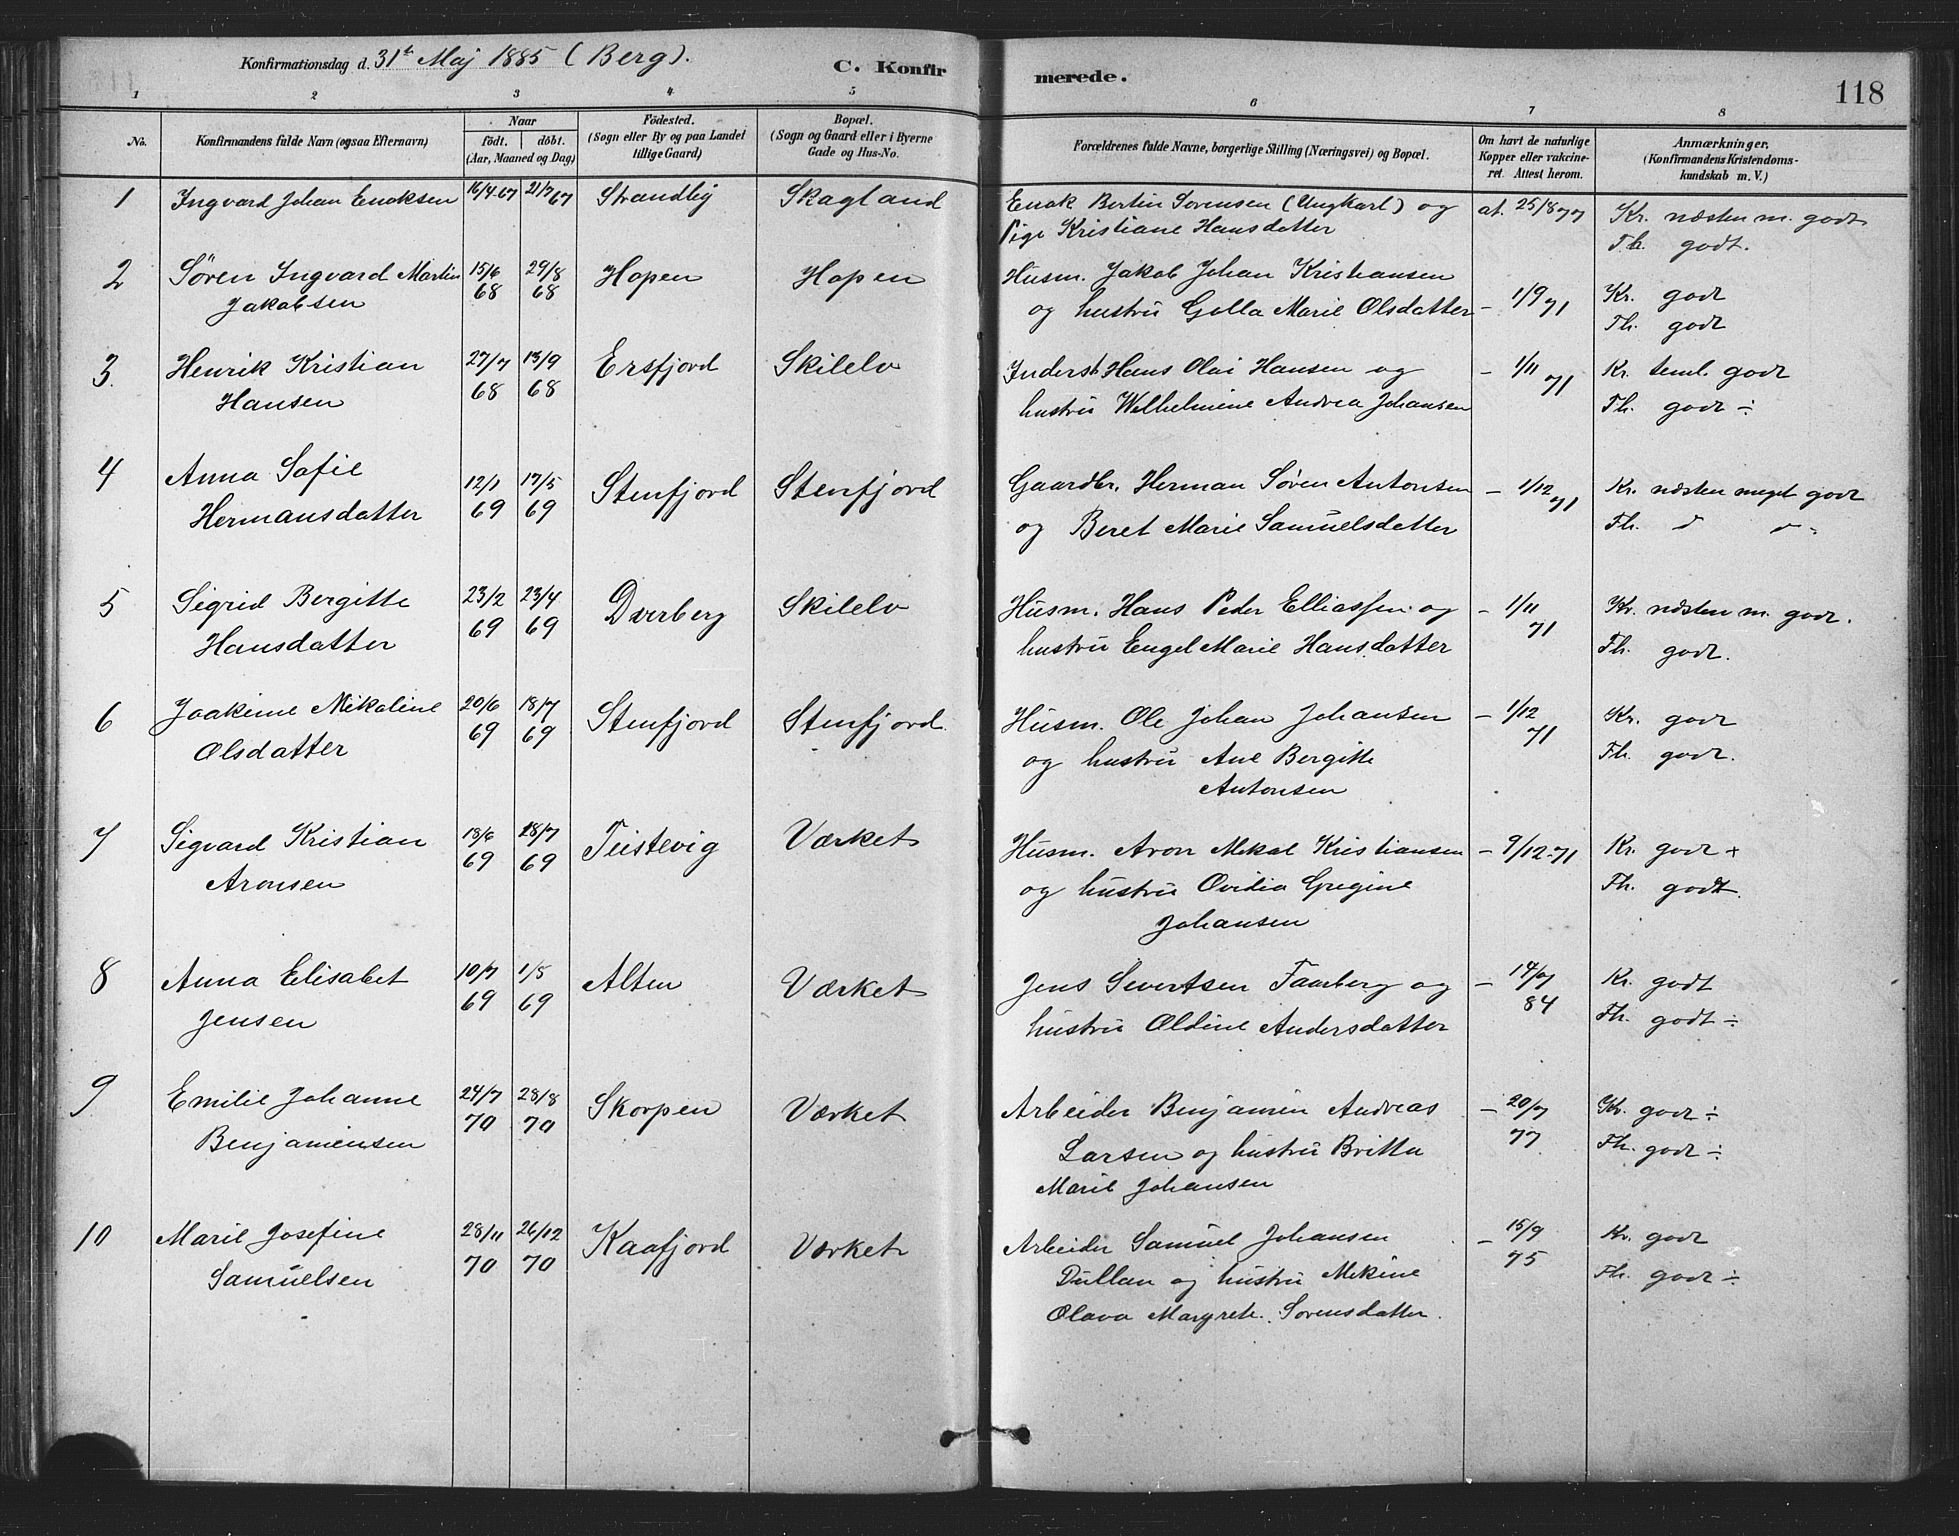 Konfirmationsdag d. 31te Maj 1885 (Berg).
C. Konfirmerede.
118
1 2 3 4 5 6 7 8
No.
Konfirmandens fulde Navn (ogsaa Efternavn)
Naar
födt. döbt.
(Aar, Maaned og Dag)
Födested.
(Sogn eller By og paa Landet
tillige Gaard)
Bopæl.
(Sogn og Gaard eller i Byerne
Gade og Hus-No.
Forældrenes fulde Navne, borgerlige Stilling (Næringsvei) og Bopæl.
Om havt de naturlige
Kopper eller vakcine-
ret. Attest herom.
Anmærkninger.
(Konfirmandens Kristendoms-
kundskab m. V.)
1 Ingvard Johan Enoksen 16/4 67 21/7 67 Strandby Skagland Enok Bertin Sørensen (Ungkarl) og at. 25/8 77 Kr. næsten m. godt
Pige Kristiane Hansdatter Th. godt.
2 Søren Ingvard Martin 15/6 29/8 Hopen Hopen Husm. Jakob Johan Kristiansen
Jakobsen 68 68 og hustru Golla Marie Olsdatter – 1/9 71 Kr. godt
Th. godt
3. Henrik Kristian 27/7 13/9 Ersfjord Skilelv Inderst Hans Olai Hansen og – 1/11 71 Kr. teml. godt
Hansen 68 68 hustru Wilhelmine Andrea Johansen Th. godt ÷
4 Anna Sofie 12/1 17/5 Stenfjord Stenfjord Gaardbr. Herman Søren Antonsen – 1/12 71 Kr. næsten meget godt
Hermansdatter 69 69 og Beret Marie Samuelsdatter Th. d d-
5 Sigrid Bergitte 23/2 23/4 Dverberg Skilelv Husm. Hans Peder Elliassen og – 1/11 Kr. næsten m. godt.
Hansdatter 69 69 hustru Engel Marie Hansdatter 71 Th. godt.
6 Joakime Mikaline 20/6 18/7 Stenfjord Stenfjord Husm. Ole Johan Johansen – 1/12 Kr. godt
Olsdatter 69 69 og hustru Ane Bergitte 71 Th. godt.
Antonsen
7 Sigvard Kristian 18/6 18/7 Teistevig Værket Husm. Aron Mikal Kristiansen – 9/12-71 Kr. godt +
Aronsen 69 69 og hustru Ovidia Gregine Th. godt.
Johansen
8 Anna Elisabet 10/7 1/5 Alten Værket Jens Sivertsen Faarberg og – 14/7 Kr. godt
Jensen 69 69 hustru Oldine Andersdatter 84 Th. godt ÷
9 Emilie Johanne 24/7 28/8 Skorpen Værket Arbeider Benjamin Andreas – 20/7 Kr. godt ÷
Benjaminsen 70 70 Larsen og hustru Britta 77 Th. godt ÷
Marie Johansen
10 Marie Josefine 28/11 26/12 Kaafjord Værket Arbeider Samuel Johansen – 15/9 Kr. godt
Samuelsen 70 70 og hustru Mekine 75 Th. godt ÷
Olava Margrete Sørensdatter.